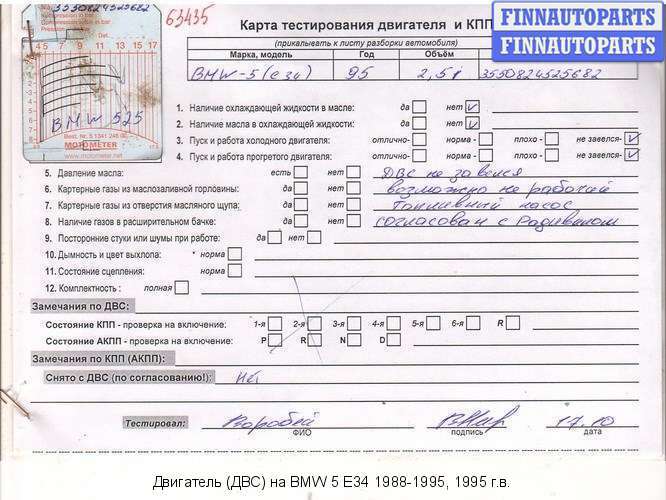 3550824525682
63435
Карта тестирования двигателя и КПП
FINNAUTOPARTS
FINNAUTOPARTS
(прикалывать к листу разборки автомобиля)
Марка, модель: Год Объём
BMW-5 (e34) 95 2,5i 3550824525682
4 5 7 9 11 13 15 17
BMW 525
Best. Nr. 5 1341 246 00
MOTOMETER
www.motometer.net
1. Наличие охлаждающей жидкости в масле: да нет ✓
2. Наличие масла в охлаждающей жидкости: да нет ✓
3. Пуск и работа холодного двигателя: отлично- норма - плохо - не завелся- ✓
4. Пуск и работа прогретого двигателя: отлично- норма - плохо - не завелся- ✓
5. Давление масла: есть нет ДВС не завелся
6. Картерные газы из маслозаливной горловины: да нет возможно не рабочий
7. Картерные газы из отверстия масляного щупа: да нет топливный насос
8. Наличие газов в расширительном бачке: да нет согласован с
9. Посторонние стуки или шумы при работе: да нет
10. Дымность и цвет выхлопа: норма
11. Состояние сцепления: норма
12. Комплектность : полная
Замечания по ДВС:
Состояние КПП - проверка на включение: 1-я 2-я 3-я 4-я 5-я 6-я R
Состояние АКПП - проверка на включение: P R N D
Замечания по КПП (АКПП):
Снято с ДВС (по согласованию!): Нет
Тестировал: Воробей 17.10
ФИО подпись дата
Двигатель (ДВС) на BMW 5 E34 1988-1995, 1995 г.в.